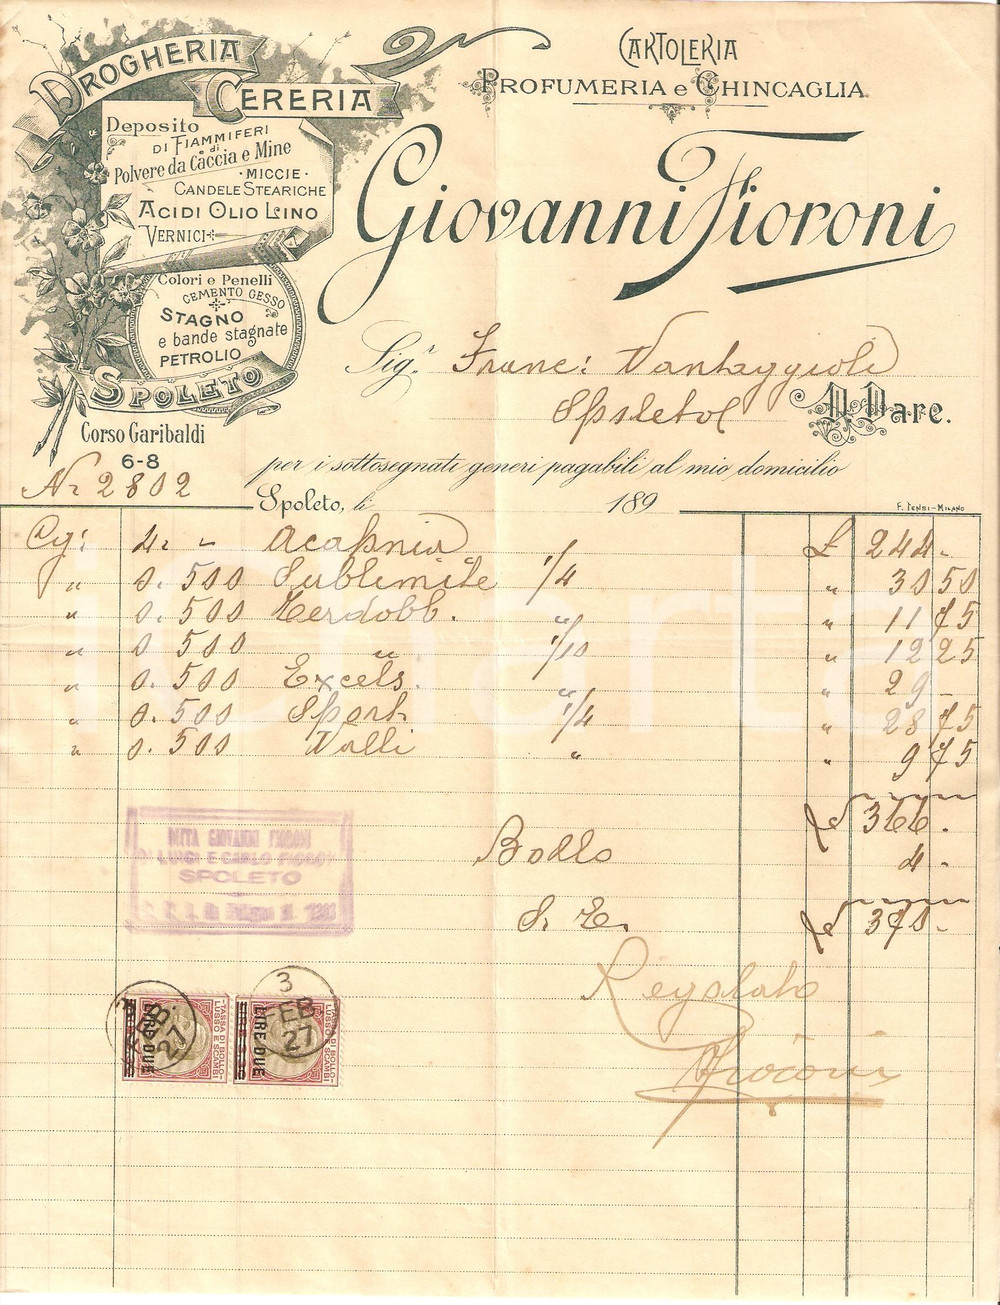 DROGHERIA
CERERIA
Deposito
DI FIAMMIFERI
di
Polvere da Caccia e Mine
· MICCIE ·
CANDELE STEARICHE
ACIDI OLIO LINO
VERNICI
Colori e Penelli
CEMENTO GESSO
STAGNO
e bande stagnate
PETROLIO
SPOLETO
Corso Garibaldi
6-8
CARTOLERIA
PROFUMERIA e CHINCAGLIA
Giovanni Fioroni
Sig.r Franc: Vantaggioli
Spoleto
D. Dare.
Nr 2802
per i sottosegnati generi pagabili al mio domicilio
Spoleto, li 189
F. TENSI-MILANO
Cg: 4. - Acapnia £ 244-
" 0.500 Sublimite 1/4 " 30 50
" 0.500 Kerdobb. " " 11 75
" 0.500 " 1/10 " 12 25
" 0.500 Excels. " " 29 -
" 0.500 Sport 1/4 " 28 75
" 0.500 Valli " " 9 75
£ 366.
Bollo 4.
S. E. £ 370-
DITTA GIOVANNI FIORONI
DI LUIGI E CARLO FIORONI
SPOLETO
Regolato
Fioroni
TASSA DI BOLLO
LUSSO E SCAMBI
LIRE DUE
FEB.
27
TASSA DI BOLLO
LUSSO E SCAMBI
LIRE DUE
3
FEB
27
iCharta